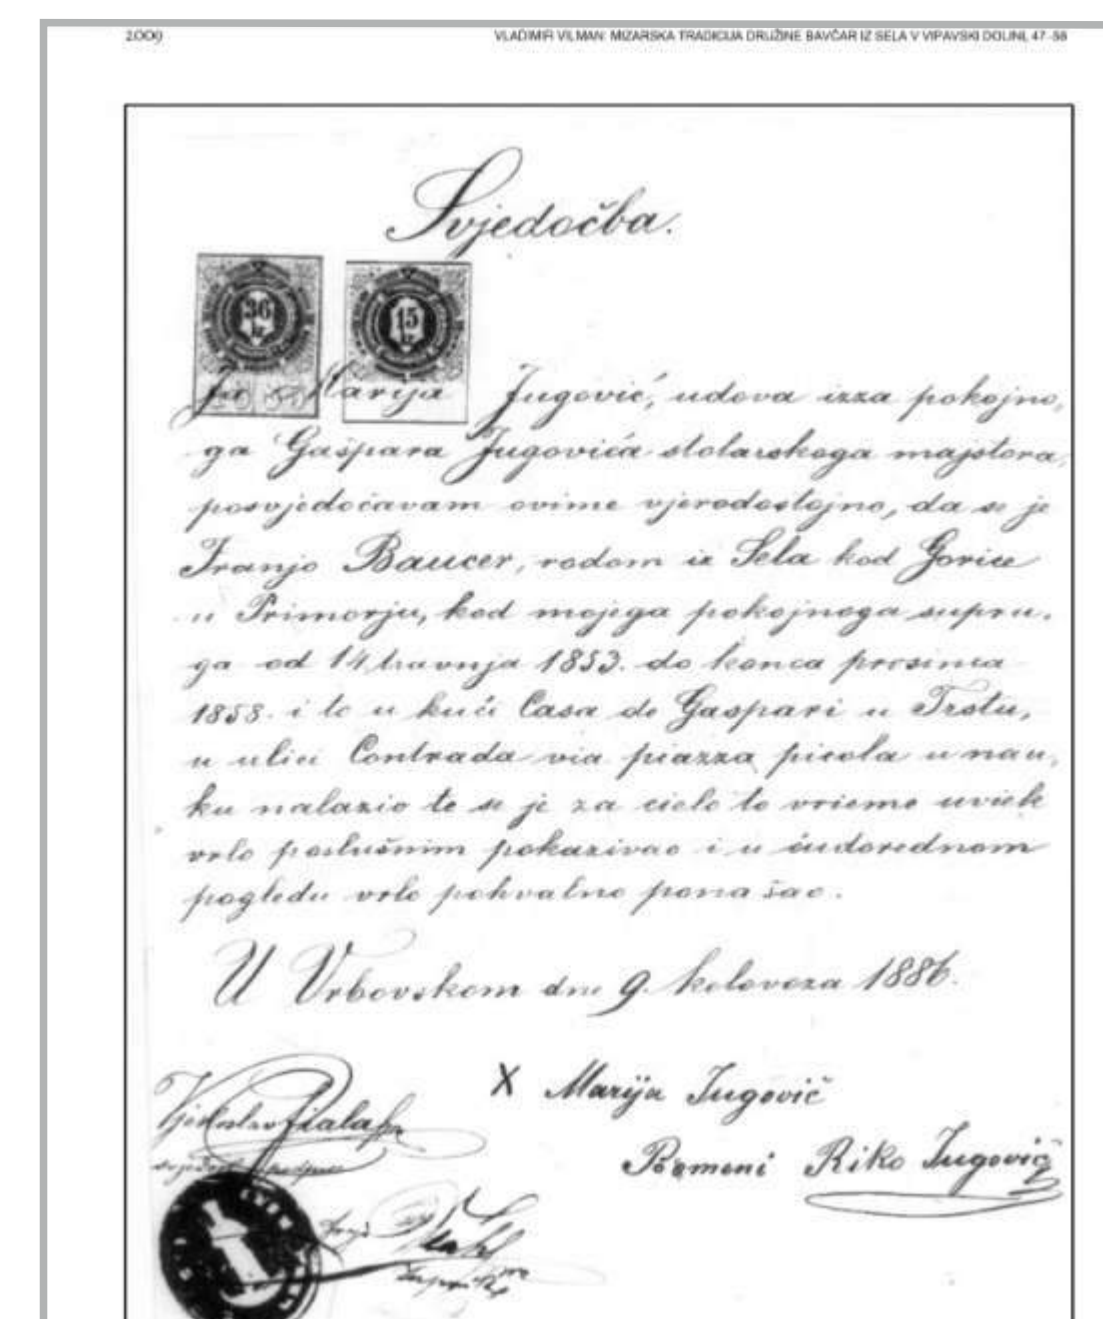 2009
VLADIMIR VILMAN: MIZARSKA TRADICIJA DRUŽINE BAVČAR IZ SELA V VIPAVSKI DOLINI, 47-58
Svjedočba.
36
kr.
15
kr.
Ja Marija Jugović, udova izza pokojno,
ga Gašpara Jugovića stolarskoga majstora,
posvjedočavam ovime vjerodostojno, da se je
Franjo Baucer, rodom iz Sela kod Gorice
u Primorju, kod mojega pokojnoga supru,
ga od 14 travnja 1853. do konca prosinca
1858. i to u kući Casa de Gaspari u Trstu,
u ulici Contrada via piazza picola u nau,
ku nalazio te se je za cielo to vrieme uviek
vrlo poslušnim pokazivao i u ćudorednom
pogledu vrlo pohvalno ponašao.
U Vrbovskom dne 9. kolovoza 1886.
X Marija Jugovič
Pomeni Riko Jugovič